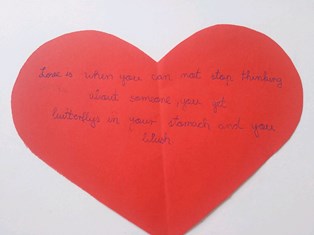 Love is when you can not stop thinking
about someone, you get
butterflys in your stomach and you
blush